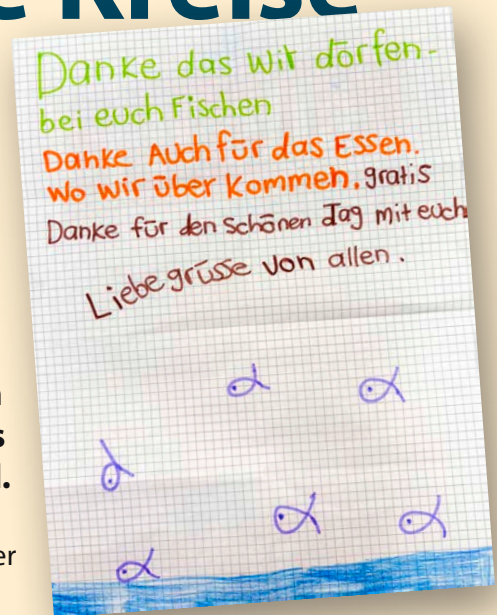 e Kreise
Danke das wir dörfen-
bei euch Fischen
Danke Auch für das Essen.
Wo wir über kommen. gratis
Danke für den schönen Tag mit euch
Liebe grüsse von allen.